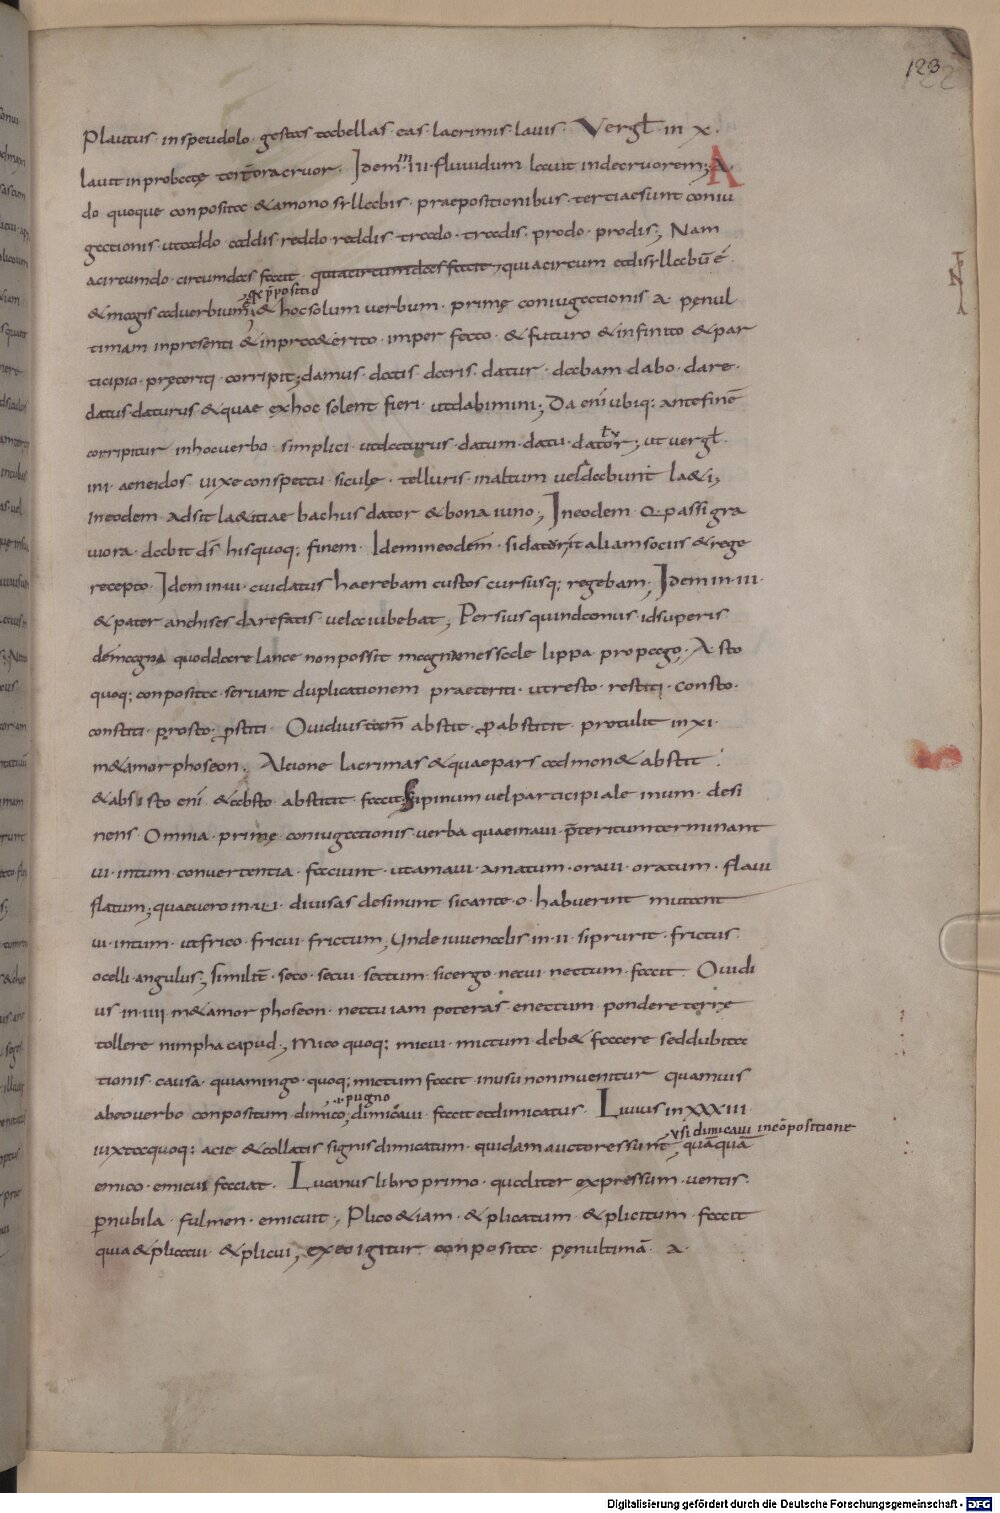 123
Plautus · inspeudolo · gestas tabellas · eas · lacrimis · lavis · Vergł · in x ·
lavit inprobatę tetra ora cruor · Idem in iii · fluuidum lavit inde cruorem; A
do quoque conposita · & a mono syllabis · praepositionibus · tertiae sunt coniu
gationis · ut addo · addis · reddo · reddis · trado · tradis · prodo · prodis; Nam
a circumdo · circumdas facit · quia circumdas facit, quia circum · & disyllabū ē ·
& p̄positio
& magis adverbium; & hoc solum verbum · primę coniugationis · a · pęnul
timam inpresenti & inpræ&erito · imperfecto · & futuro & infinito & par
ticipio · pręteriti · corripit; damus · datis · daris · datur · dabam · dabo · dare ·
datus · daturus & quae ex hoc solent fieri · ut dabimini; Da eni ubiq; ante finē
corripitur in hoc verbo · simplici · ut daturus · datum · datu · dator; ut vergł ·
in i · aeneidos · vix e conspectu · siculę · telluris · in altum vela dabunt la&i;
In eodem · Adsit la&itiae bachus dator & bona iuno; In eodem · O passi gra
viora · dabit ds̄ his quoq; finem · Idem in eodem · si datur italiam sociis & rege
recepto · Idem in · vi · cui datus haerebam custos cursusq; regebam; Idem in · iii ·
& pater anchises dare fatis vela iubebat; Persius quin damus id superis
de magna quod dare lance non possit magna messale lippa propago; A sto
quoq; conposita servant duplicationem praeteriti · ut resto · restiti · consto ·
constiti · prosto · p̄stiti · Ovidius tam̄ abstit p̄ abstitit protulit in xi ·
m&amorphoseon · Alcione lacrimas & quae pars admon& abstit ·
& absisto eni & absto abstitit facit · Supinum vel participiale in um · desi
nens · Omnia · primę coniugationis verba quae in avi p̄teritum terminant
vi · in tum convertentia · faciunt · ut amavi · amatum · oravi · oratum · flavi
flatum; quae vero in · ui · divisas desinunt sic ante · o · habuerint mutant
ui · in tum · ut frico · fricui · frictum; Unde iuvenalis in · ii · si prurit · frictus
ocelli angulus; similit̄ · seco · secui · sectum · sic ergo · necui · nectum · facit · Ovidi
us · in · iiii · m&amorphoseon · nectu iam poteras enectum pondere terrę
tollere nimpha capud; Mico quoq; micui · mictum deb& facere sed dubita
tionis · causa · quia mingo · quoq; mictum facit in usu non invenitur quamvis
· i · pugno
ab eo verbo conpositum dimico; dimicavi · facit & dimicatus · Livius in XXXIII ·
v̄si dimicavi in cōpositione
iuxta quoq; acie & collatis signis dimicatum · quidam auctores sunt; quāquā
emico · emicui faciat · Lucanus libro primo · qualiter expressum · ventis ·
p̄ nubila · fulmen · emicuit; Plico & iam · & plicatum & plicitum facit
quia & plicavi & plicui; ex eo igitur conposita pęnultimā · a ·
Digitalisierung gefördert durch die Deutsche Forschungsgemeinschaft - DFG